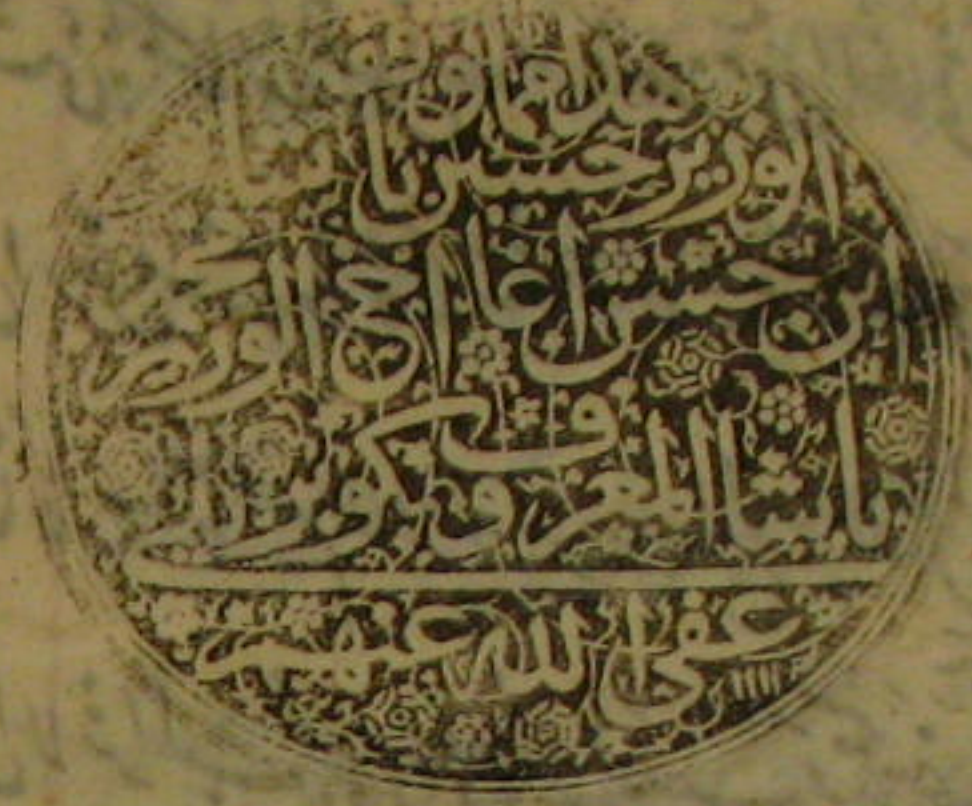 هذا مما وقفه
الوزير حسين باشا
ابن حسن اغا اخ الوزير محمد
باشا المعروف بكوپريلي
عفى الله عنهم ١١١١